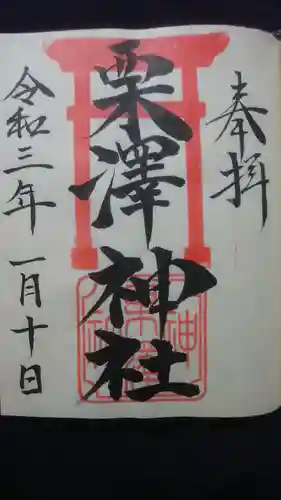 奉拝
栗澤神社
令和三年一月十日